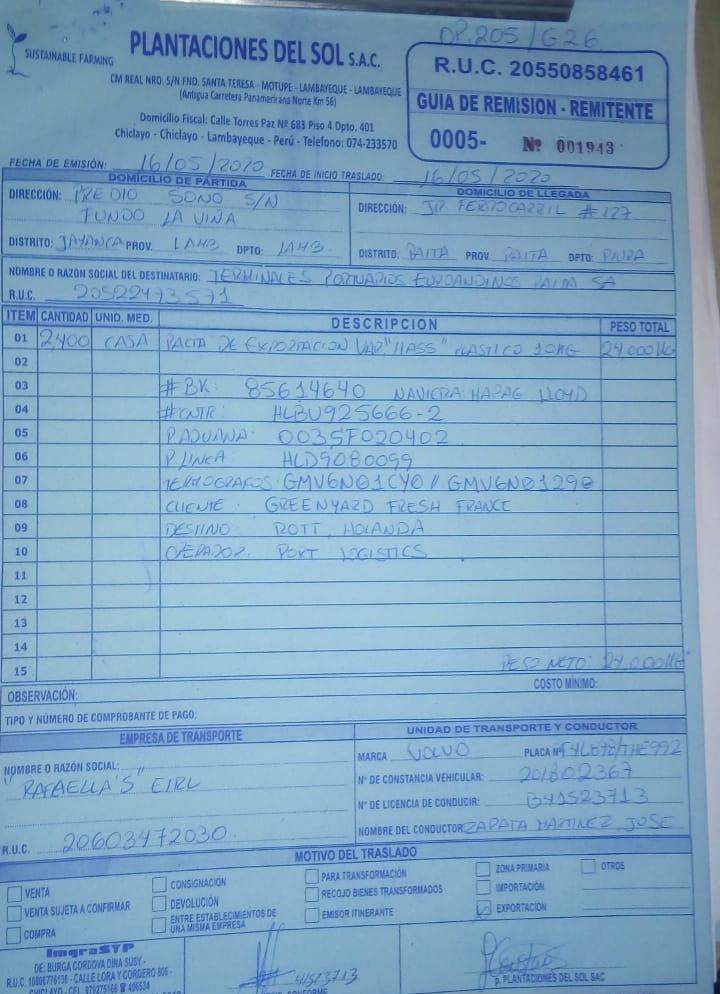 OP.205/G26
SUSTAINABLE FARMING
PLANTACIONES DEL SOL S.A.C.
CM REAL NRO. S/N FND. SANTA TERESA - MOTUPE - LAMBAYEQUE - LAMBAYEQUE
(Antigua Carretera Panamericana Norte Km 56)
Domicilio Fiscal: Calle Torres Paz Nº 683 Piso 4 Dpto. 401
Chiclayo - Chiclayo - Lambayeque - Perú - Telefono: 074-233570
R.U.C. 20550858461
GUIA DE REMISION - REMITENTE
0005- Nº 001943
FECHA DE EMISIÓN: 16/05/2020 FECHA DE INICIO TRASLADO: 16/05/2020
DOMICILIO DE PARTIDA
DIRECCIÓN: PREDIO SONO S/N
FUNDO LA VIÑA
DISTRITO: JAYANCA PROV. LAMB DPTO: LAMB
DOMICILIO DE LLEGADA
DIRECCIÓN: JR FERROCARRIL #127
DISTRITO: PAITA PROV PAITA DPTO: PIURA
NOMBRE O RAZÓN SOCIAL DEL DESTINATARIO: TERMINALES PORTUARIOS EUROANDINOS PAITA SA
R.U.C. 20522473571
ITEM CANTIDAD UNID. MED. DESCRIPCION PESO TOTAL
01 2,400 CAJA PALTA DE EXPORTACION VAR "HASS" PLASTICO 10KG 24,000KG
02
03 #BK: 85614640 NAVIERA: HAPAG LLOYD
04 #CNTR: HLBU925666-2
05 P.ADUANA: 0035F020402
06 P.LINEA: HLD9080099
07 TERMOGRAFOS: GMV6N01CY0 // GMV6N01290
08 CLIENTE: GREENYARD FRESH FRANCE
09 DESTINO: ROTT, HOLANDA
10 OPERADOR: PORT LOGISTICS
11
12
13
14
15 PESO NETO: 24,000KG
OBSERVACIÓN: COSTO MÍNIMO:
TIPO Y NÚMERO DE COMPROBANTE DE PAGO:
EMPRESA DE TRANSPORTE
NOMBRE O RAZÓN SOCIAL:
"RAFAELLA'S" EIRL
R.U.C. 20603472030
UNIDAD DE TRANSPORTE Y CONDUCTOR
MARCA VOLVO PLACA Nº
Nº DE CONSTANCIA VEHICULAR: 201802367
Nº DE LICENCIA DE CONDUCIR: B41523713
NOMBRE DEL CONDUCTOR ZAPATA MARTINEZ JOSE
MOTIVO DEL TRASLADO
VENTA
VENTA SUJETA A CONFIRMAR
COMPRA
CONSIGNACIÓN
DEVOLUCIÓN
ENTRE ESTABLECIMIENTOS DE
UNA MISMA EMPRESA
PARA TRANSFORMACIÓN
RECOJO BIENES TRANSFORMADOS
EMISOR ITINERANTE
ZONA PRIMARIA
IMPORTACIÓN
EXPORTACIÓN
OTROS
ImgraSYP
DE: BURGA CORDOVA DINA SUSY -
R.U.C. 10806776136 - CALLE LORA Y CORDERO 806 -
CHICLAYO - CEL. 979275166 # 496534
41523713
CONFORME
p. PLANTACIONES DEL SOL SAC